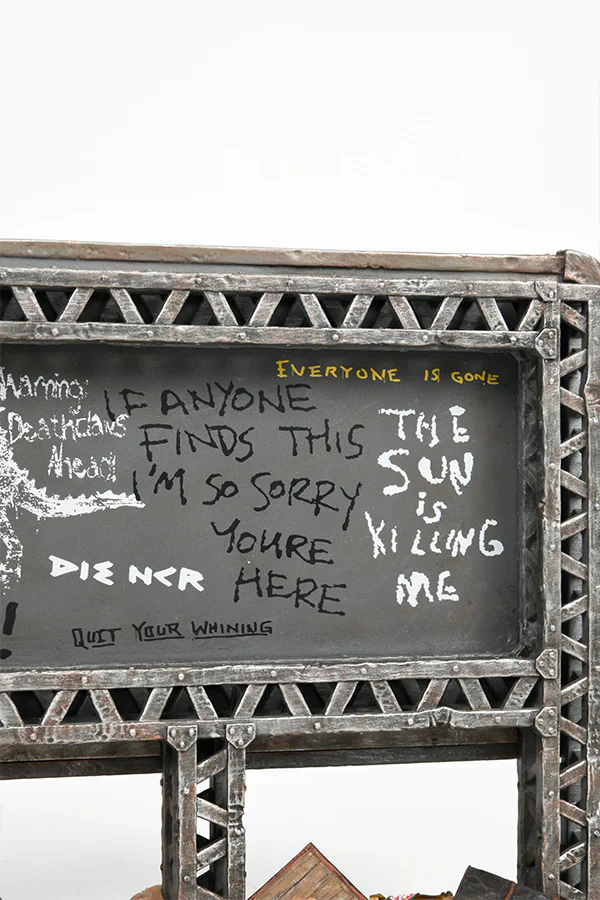 EVERYONE IS GONE
Warning:
Deathclaws
Ahead!
IF ANYONE
FINDS THIS
I'M SO SORRY
YOURE
HERE
THE
SUN
is
KILLING
ME
DIE NCR
QUIT YOUR WHINING
!